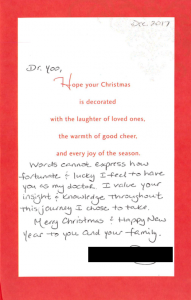 Dec. 2017
Dr. Yoo,
Hope your Christmas
is decorated
with the laughter of loved ones,
the warmth of good cheer,
and every joy of the season.
Words cannot express how
fortunate & lucky I feel to have
you as my doctor. I value your
insight & knowledge throughout
this journey I chose to take.
Merry Christmas & Happy New
Year to you and your family.